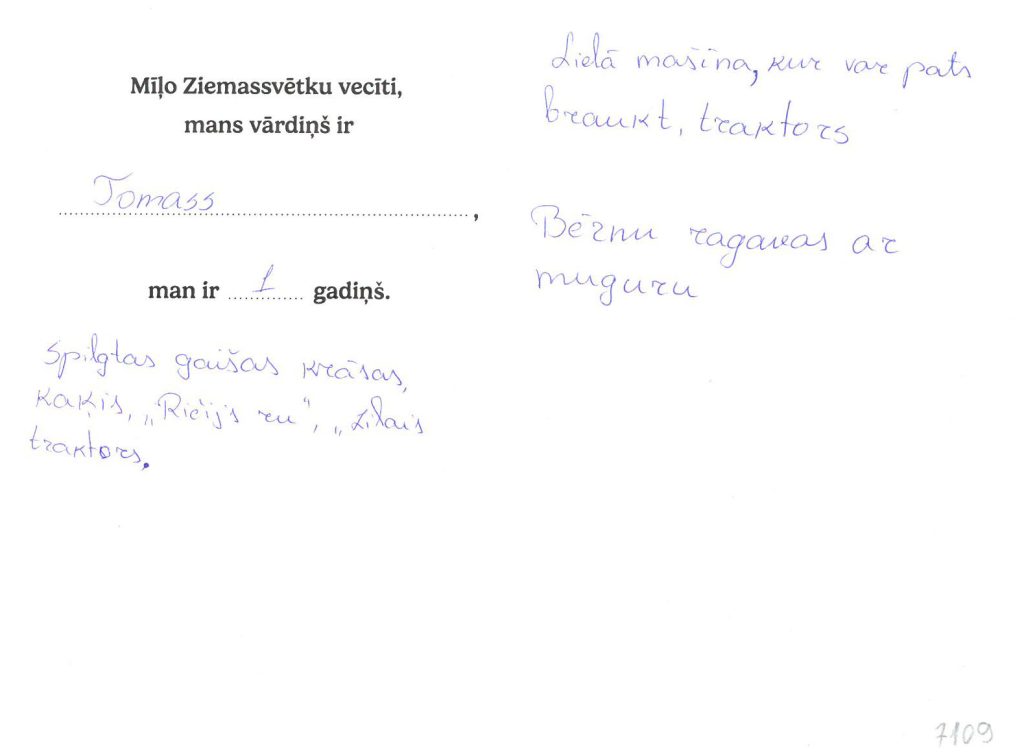 Mīļo Ziemassvētku vecīti,
mans vārdiņš ir
Tomass,
man ir 1 gadiņš.
Spilgtas gaišas krāsas,
kaķis, „Ričijs ru“, „Zilais
traktors.
Lielā mašīna, kur var pats
braukt, traktors
Bērnu ragavas ar
muguru
7109